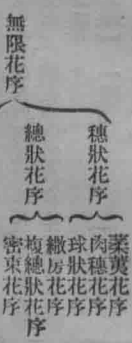 無限花序
穗狀花序
總狀花序
葇荑花序
肉穗花序
球狀花序
繖房花序
複總狀花序
密束花序